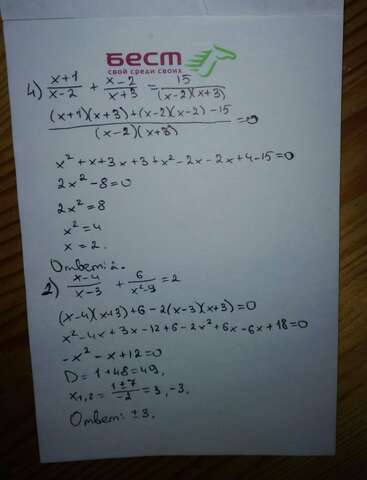 БЕСТ
свой среди своих
4) (x+1)/(x-2) + (x-2)/(x+3) = 15/((x-2)(x+3))
((x+1)(x+3)+(x-2)(x-2)-15)/((x-2)(x+3)) =0
x²+x+3x+3+x²-2x-2x+4-15=0
2x²-8=0
2x²=8
x²=4
x=2.
Ответ: 2.
2) (x-4)/(x-3) + 6/(x²-9) =2
(x-4)(x+3)+6-2(x-3)(x+3)=0
x²-4x+3x-12+6-2x²+6x-6x+18=0
-x²-x+12=0
D=1+48=49,
x₁,₂= (1±7)/(-2) =3,-3.
Ответ: ±3.